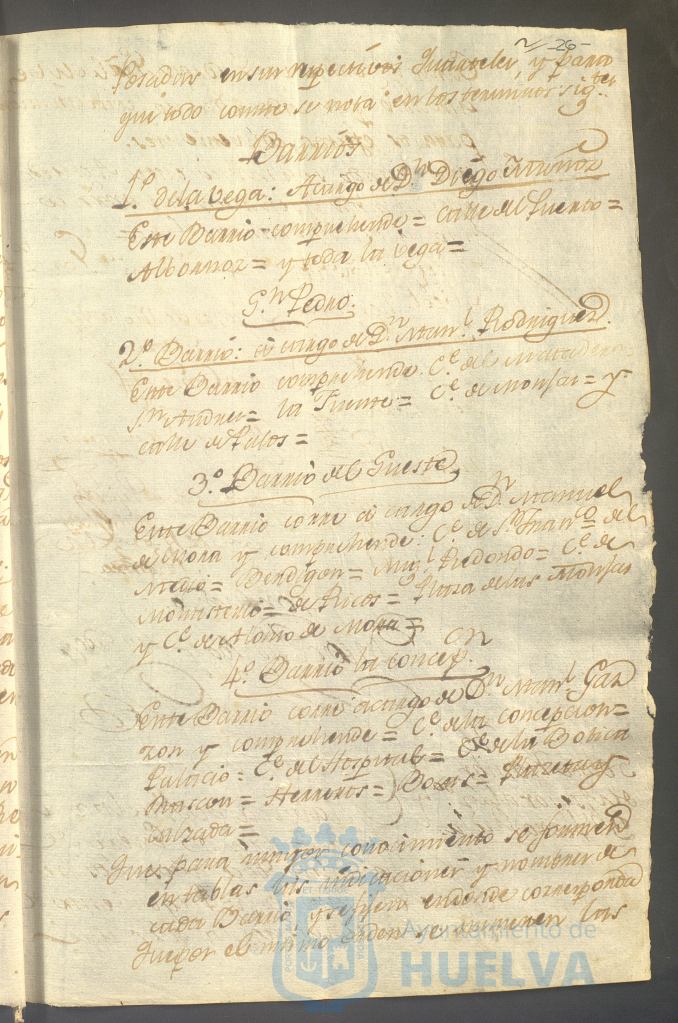 26
en sus respectivos Quarteles, y para
que todo conste se nota en los terminos sig.tes
Barrios
1.º de la Vega: A cargo de D.n Diego Muñoz
Este Barrio comprehende = calle del Puerto =
Albornoz = y toda la Vega =
S.n Pedro.
2.º Barrio: á cargo de D.n Man.l Rodriguez
Este Barrio comprehende: C.e del Matadero
S.n Andres = la Fuente = C.e de Monjas = y
calle de Palos =
3.º Barrio del Gueste
Este Barrio corre á cargo de D.n Manuel
de Mora y comprehende: C.e de S.n Fran.co del
Medio = Bendigon = Mig.l Redondo = C.e de
Monasterio = de Ricos = Plaza de las Monjas
y C.e de Alonso de Mora =
4.º Barrio la Concep.on
Este Barrio corre a cargo de D.n Man.l Gar
zon y comprehende = C.e de la Concepcion =
Palacio = C.e del Hospital = C.e de la Botica
Rascon = Herreros = =
Calzada =
Que para mayor conocimiento se formen
en tablas las indicaciones y nombres de
cada Barrio y se en donde corresponda
Que por el mismo orden se numeren las
Ayuntamiento de
HUELVA